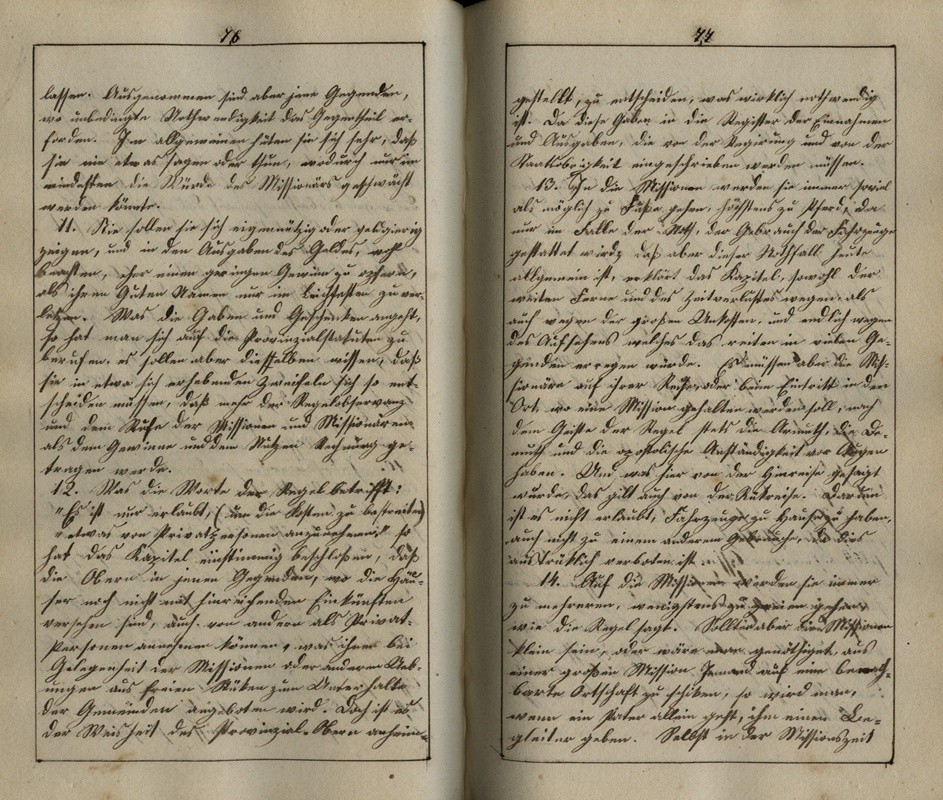 76
lassen. Ausgenommen sind aber jene Gegenden,
wo unbedingte Nothwendigkeit das Gegentheil er-
fordern. Im allgemeinen hüten sie sich sehr, daß
sie nie etwas sagen oder thun, wodurch nur im
mindesten die Würde des Missionärs geschwächt
werden könnte.
11. Nie sollen sie sich eigennützig oder geldgierig
zeigen, und in den Ausgaben des Geldes, wohl
beachten, eher einen geringen Gewinn zu opfern,
als ihren Guten Namen nur im leichtesten zu ver-
letzen. Was die Gaben und Geschenken angeht,
so hat man sich auf die Provinzialstatuten zu
berufen, es sollen aber dieselben wissen, daß
sie in etwa sich erhebenden Zweifeln sich so ent-
scheiden müssen, daß mehr der Regelobservanz
und dem Rufe der Missionen und Missionären
als dem Gewinne und dem Nutzen Rechnung ge-
tragen werde.
12. Was die Worte der Regel betrifft:
"Es ist nur erlaubt, (um die Kosten zu bestreiten)
"etwas von Privatpersonen anzunehmen" so
hat das Kapitel einstimmig beschloßen, daß
die Obern in jenen Gegenden, wo die Häu-
ser noch nicht mit hinreichenden Einkünften
versehen sind, auch von andern als Privat-
personen annehmen können, was ihnen bei
Gelegenheit der Missionen oder anderen Ueb-
ungen aus freien Stüken zum Unterhalte
der Gemeinden angeboten wird. Doch ist es
der Weisheit des Provinzial-Obern anheim-
77
gestellt, zu entscheiden, was wirklich nothwendig
ist. Da diese Gaben in die Register der Einnahmen
und Ausgaben, die von der Regierung und von der
Staatsobrigkeit eingeschrieben werden müssen.
13. In die Missionen werden sie immer soviel
als möglich zu Fuße gehen, höchstens zu Pferd, da
nur im Falle der Noth, der Gebrauch der Fahrzeuge
gestattet wird; daß aber dieser Nothfall heute
allgemein ist, erklärt das Kapitel, sowohl der
weiten Ferne und des Zeitverlustes wegen, als
auch wegen der großen Unkosten, und endlich wegen
des Aufsehens welches das reiten in vielen Ge-
genden erregen würde. Es müssen aber die Mis-
sionäre auf ihrer Reise, oder beim Eintritt in den
Ort, wo eine Mission gehalten werden soll, nach
dem Geiste der Regel stets die Armuth, die De-
muth und die apostolische Anständigkeit vor Augen
haben. Und was hier von der Hinreise gesagt
wurde, das gilt auch von der Rükreise. Darum
ist es nicht erlaubt, Fahrzeuge zu Hause zu haben,
auch nicht zu einem anderem Gebrauche, da dies
ausdrüklich verboten ist.
14. Auf die Missionen werden sie immer
zu mehreren, wenigstens zu zweien gehen,
wie die Regel sagt. Sollten aber die Missionen
klein sein, oder wäre man genöthiget, aus
einer großen Mission Jemand auf eine benach-
barte Ortschaft zu schiken, so wird man,
wenn ein Pater allein geht, ihm einen Be-
gleiter geben. Selbst in der Missionszeit